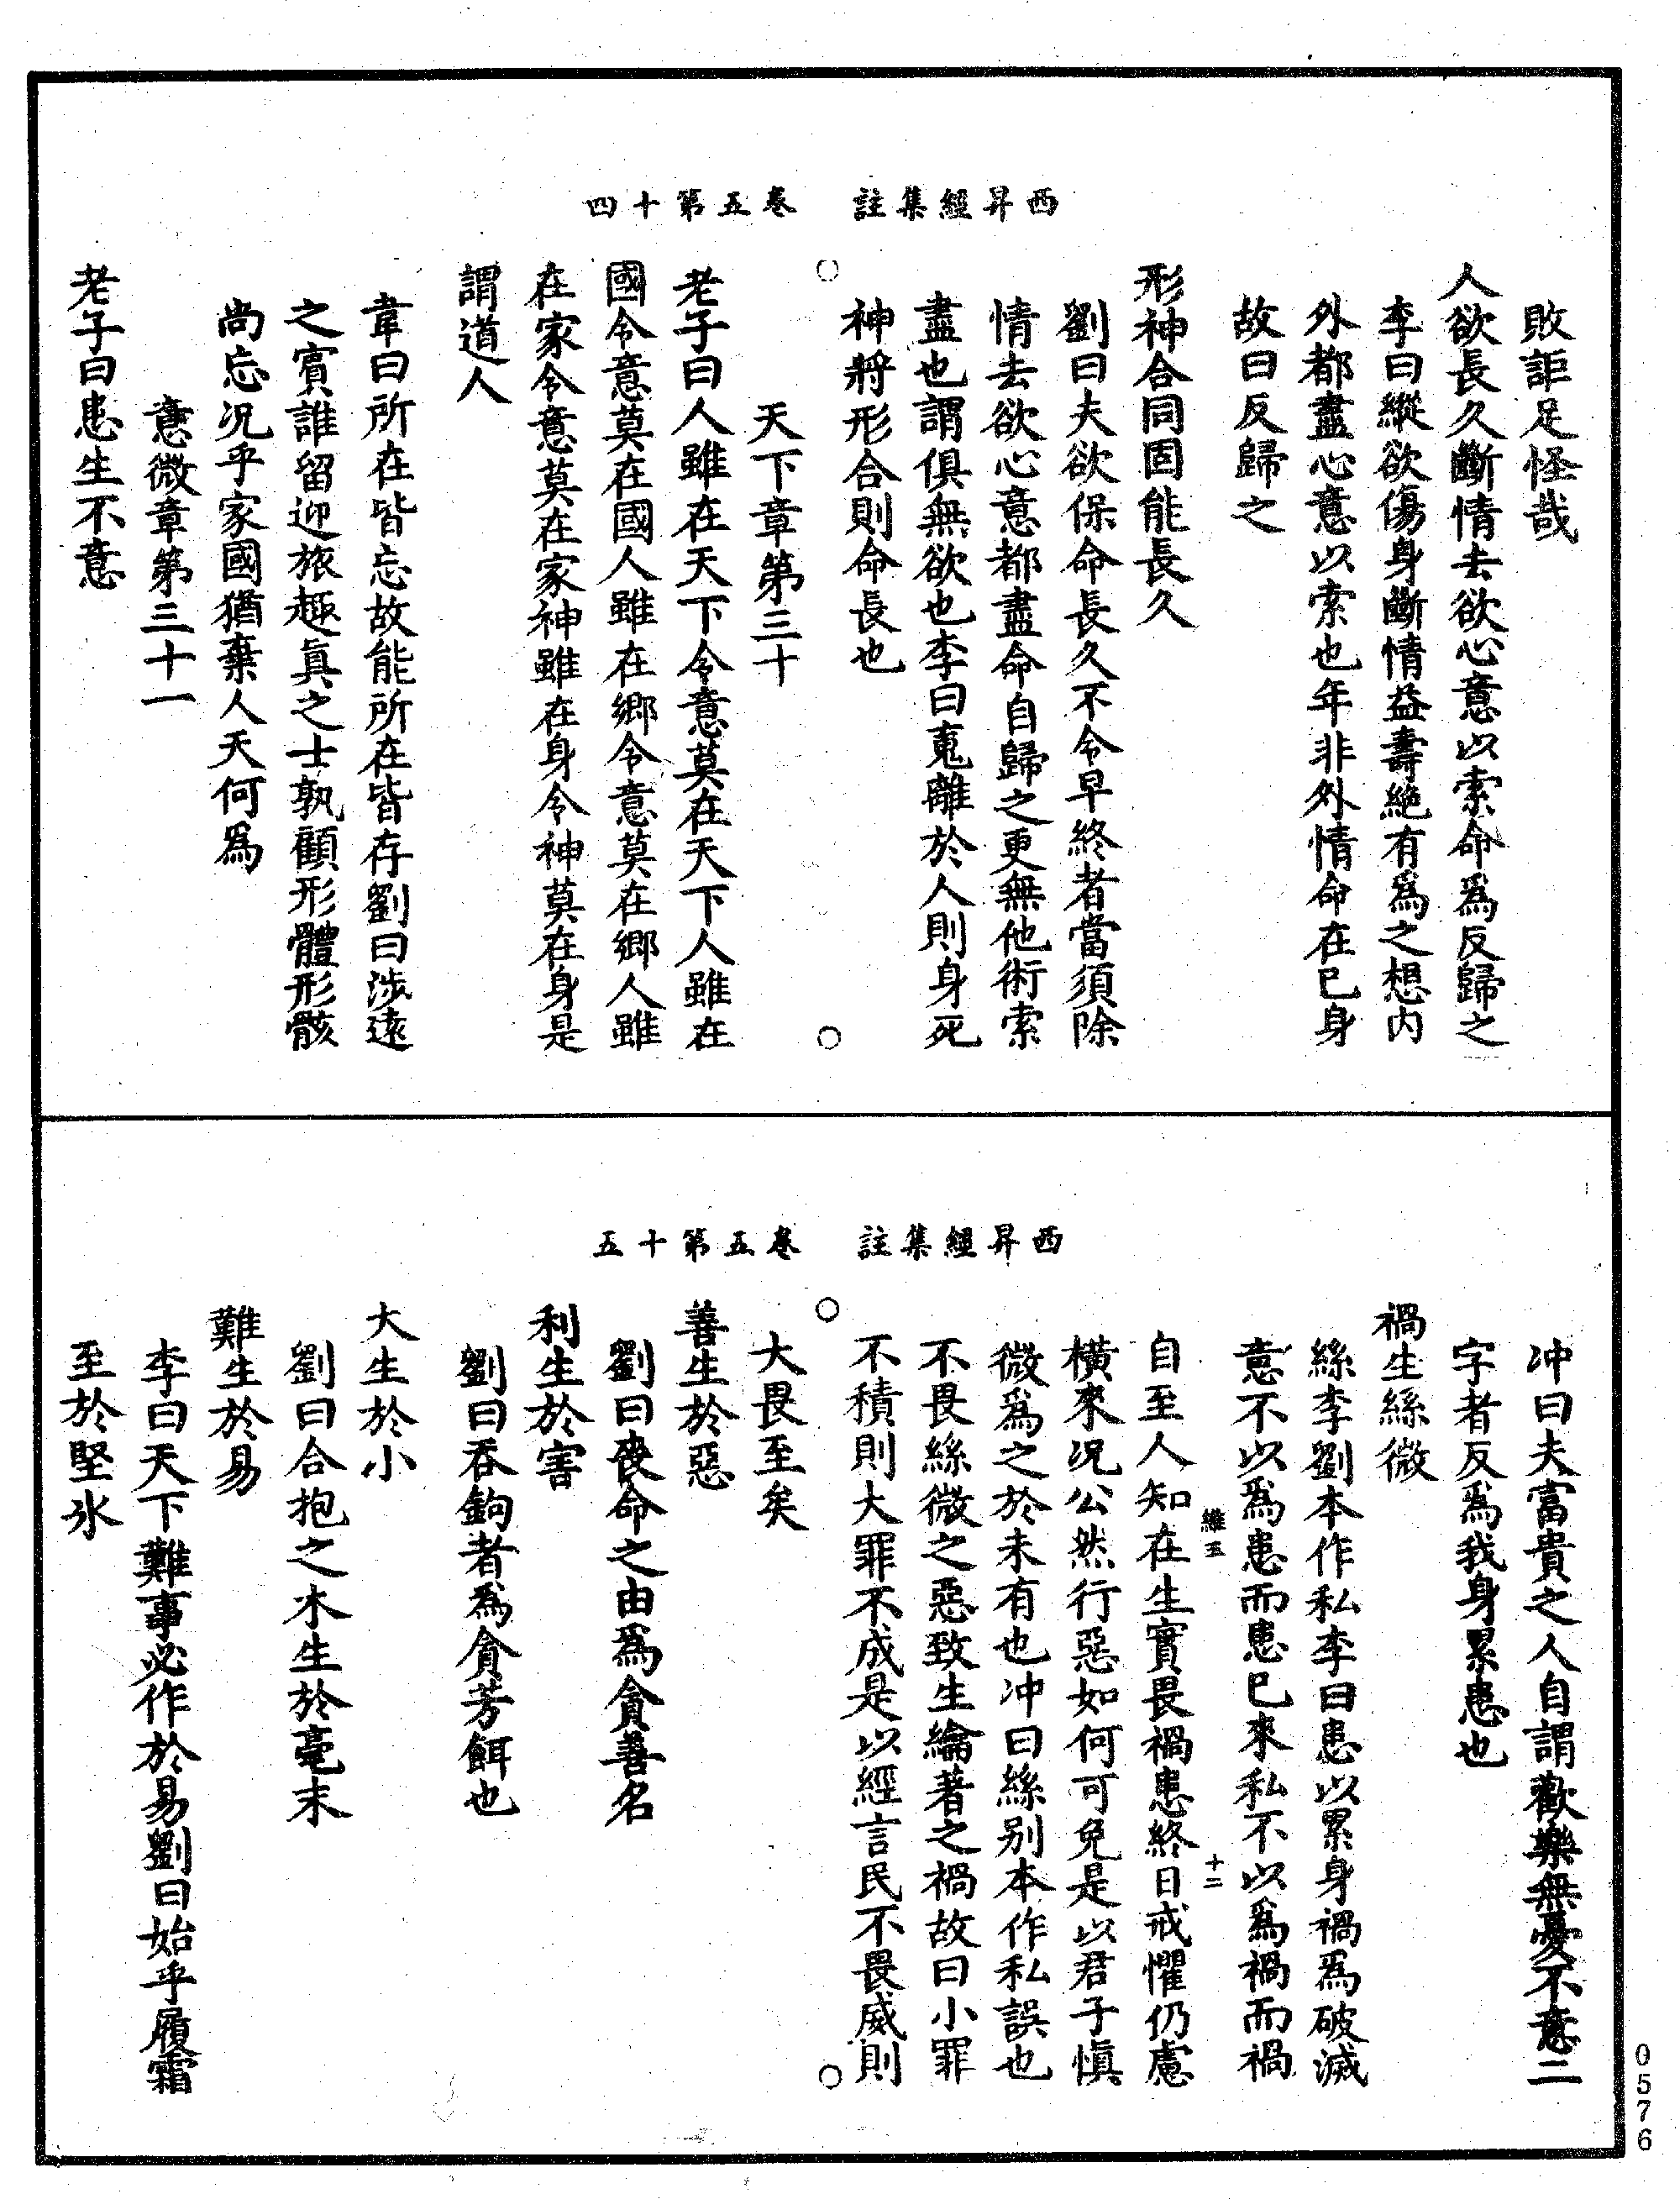 西昇經集註　卷五第十四
敗詎足怪哉
人欲長久斷情去欲心意以索命爲反歸之
李曰縱欲傷身斷情益壽絶有爲之想内
外都盡心意以索也年非外情命在已身
故曰反歸之
形神合同固能長久
劉曰夫欲保命長久不令早終者當須除
情去欲心意都盡命自歸之更無他術索
盡也謂俱無欲也李曰䰟離於人則身死
神將形合則命長也
天下章第三十
老子曰人雖在天下令意莫在天下人雖在
國令意莫在國人雖在鄉令意莫在鄉人雖
在家令意莫在家神雖在身令神莫在身是
謂道人
韋曰所在皆忘故能所在皆存劉曰涉遠
之賓誰留迎旅趣真之士孰顧形體形骸
尚忘况乎家國猶棄人天何爲
意微章第三十一
老子曰患生不意
西昇經集註　卷五第十五
冲曰夫富貴之人自謂歡樂無憂不意二
字者反爲我身累患也
禍生絲微
絲李劉本作私李曰患以累身禍爲破滅
意不以爲患而患已來私不以爲禍而禍
維五　十二
自至人知在生實畏禍患終日戒懼仍慮
橫來况公然行惡如何可免是以君子慎
微爲之於未有也冲曰絲别本作私誤也
不畏絲微之惡致生綸著之禍故曰小罪
不積則大罪不成是以經言民不畏威則
大畏至矣
善生於惡
劉曰喪命之由爲貪善名
利生於害
劉曰吞鉤者爲貪芳餌也
大生於小
劉曰合抱之木生於毫末
難生於易
李曰天下難事必作於易劉曰始乎履霜
至於堅氷
0576